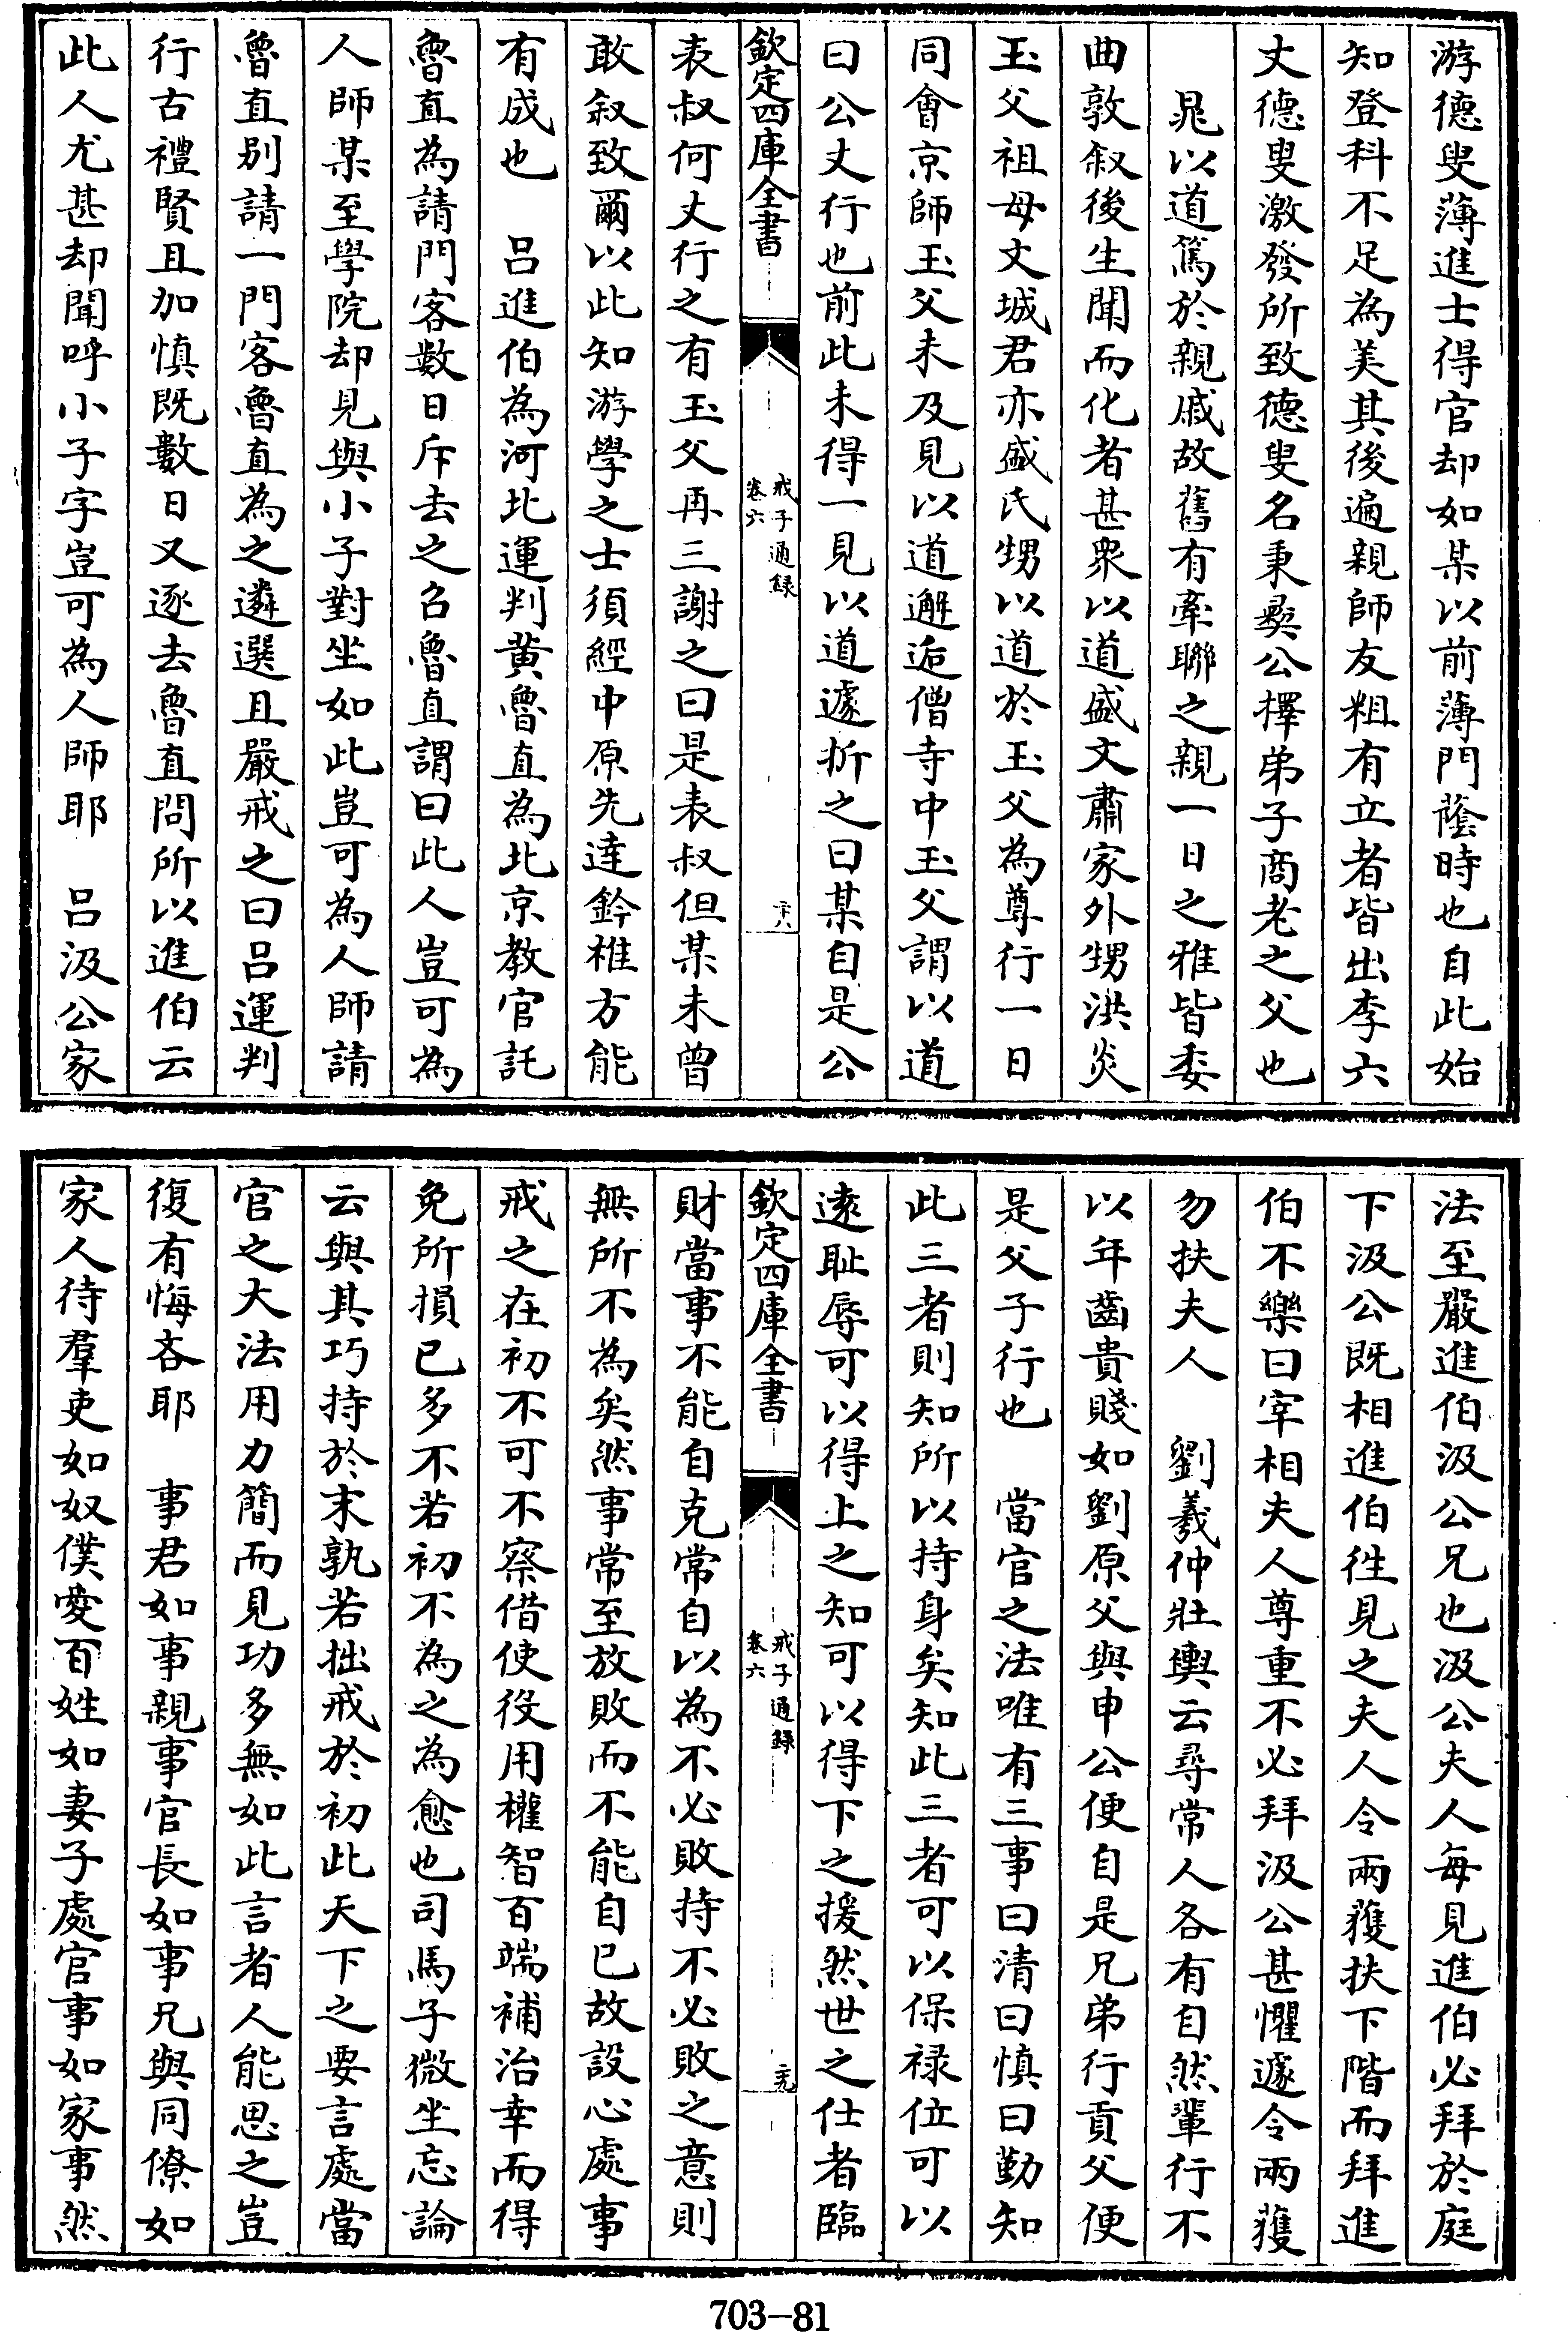 游德叟薄進士得官却如某以前薄門蔭時也自此始
知登科不足為美其後遍親師友粗有立者皆出李六
丈德叟激發所致德叟名秉彝公擇弟子商老之父也
晁以道篤於親戚故舊有牽聯之親一日之雅皆委
曲敦叙後生聞而化者甚衆以道盛文肅家外甥洪炎
玉父祖母文城君亦盛氏甥以道於玉父為尊行一日
同會京師玉父未及見以道邂逅僧寺中玉父謂以道
曰公丈行也前此未得一見以道遽折之曰某自是公
欽定四庫全書
戒子通録
卷六
二十八
表叔何丈行之有玉父再三謝之曰是表叔但某未曾
敢叙致爾以此知游學之士須經中原先達鈐椎方能
有成也 呂進伯為河北運判黄魯直為北京教官託
魯直為請門客數日斥去之召魯直謂曰此人豈可為
人師某至學院却見與小子對坐如此豈可為人師請
魯直别請一門客魯直為之遴選且嚴戒之曰呂運判
行古禮賢且加慎既數日又逐去魯直問所以進伯云
此人尤甚却聞呼小子字豈可為人師耶 呂汲公家
法至嚴進伯汲公兄也汲公夫人每見進伯必拜於庭
下汲公既相進伯徃見之夫人令兩獲扶下階而拜進
伯不樂曰宰相夫人尊重不必拜汲公甚懼遽令兩獲
勿扶夫人 劉羲仲壯輿云尋常人各有自然輩行不
以年齒貴賤如劉原父與申公便自是兄弟行貢父便
是父子行也 當官之法唯有三事曰清曰慎曰勤知
此三者則知所以持身矣知此三者可以保禄位可以
逺耻辱可以得上之知可以得下之援然世之仕者臨
欽定四庫全書
戒子通録
卷六
二十九
財當事不能自克常自以為不必敗持不必敗之意則
無所不為矣然事常至放敗而不能自已故設心處事
戒之在初不可不察借使役用權智百端補治幸而得
免所損已多不若初不為之為愈也司馬子微坐忘論
云與其巧持於末孰若拙戒於初此天下之要言處當
官之大法用力簡而見功多無如此言者人能思之豈
復有悔吝耶 事君如事親事官長如事兄與同僚如
家人待羣吏如奴僕愛百姓如妻子處官事如家事然
703-81